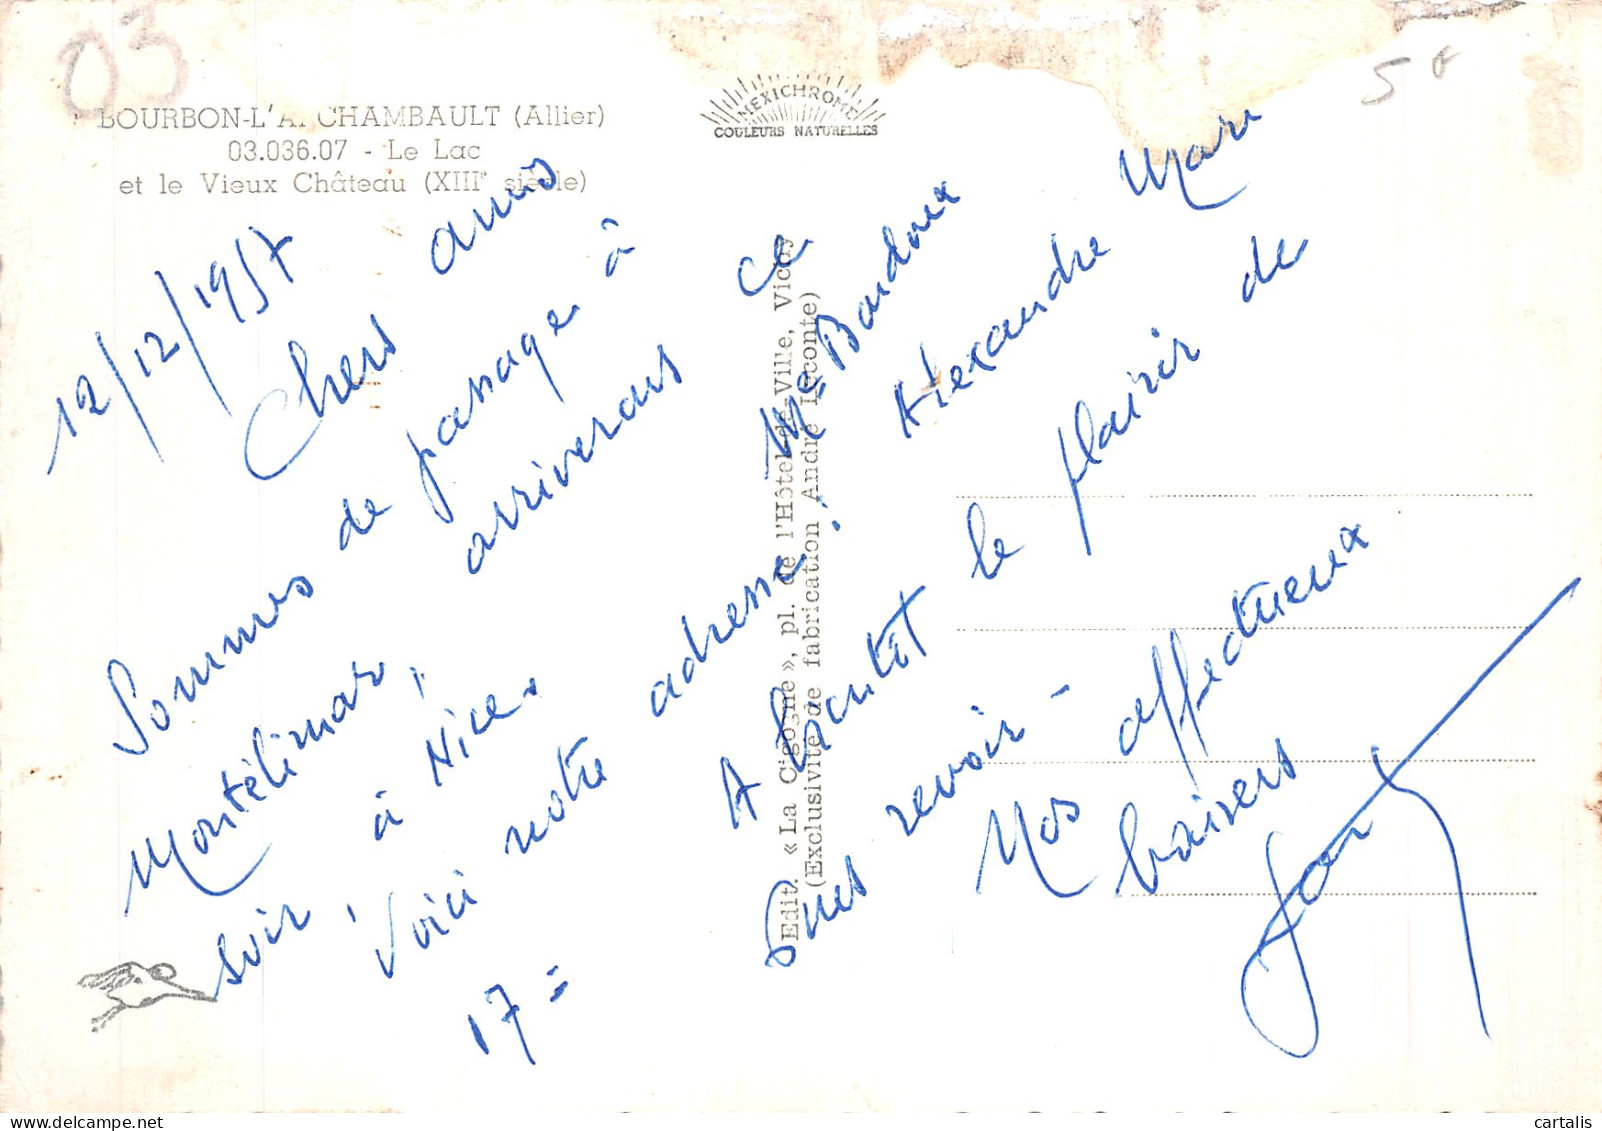 03
5
BOURBON-L'ARCHAMBAULT (Allier)
03.036.07 - Le Lac
et le Vieux Château (XIIIe siècle)
MEXICHROME
COULEURS NATURELLES
12/12/1957
Chers amis
Sommes de passage à
Montélimar, arriverons ce
soir, à Nice.
Voici notre adresse: Me
17 = Alexandre Mari
A bientôt le plaisir de
vous revoir -
Nos affectueux
baisers
Edit. « La Cigogne », pl. de l'Hôtel-de-Ville, Vichy
(Exclusivité de fabrication André Leconte)
cartalis
delcampe.net